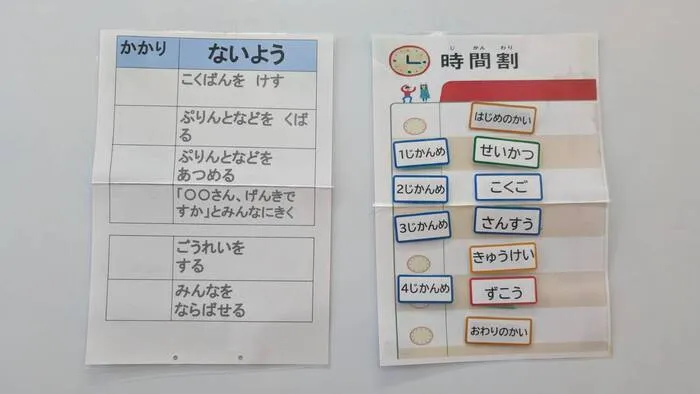 かかり ないよう
こくばんを けす
ぷりんとなどを くば
る
ぷりんとなどを
あつめる
「〇〇さん、げんきで
すか」とみんなにきく
ごうれいを
する
みんなを
ならばせる
じ かん わり
時間割
はじめのかい
1じかんめ せいかつ
2じかんめ こくご
3じかんめ さんすう
きゅうけい
4じかんめ ずこう
おわりのかい